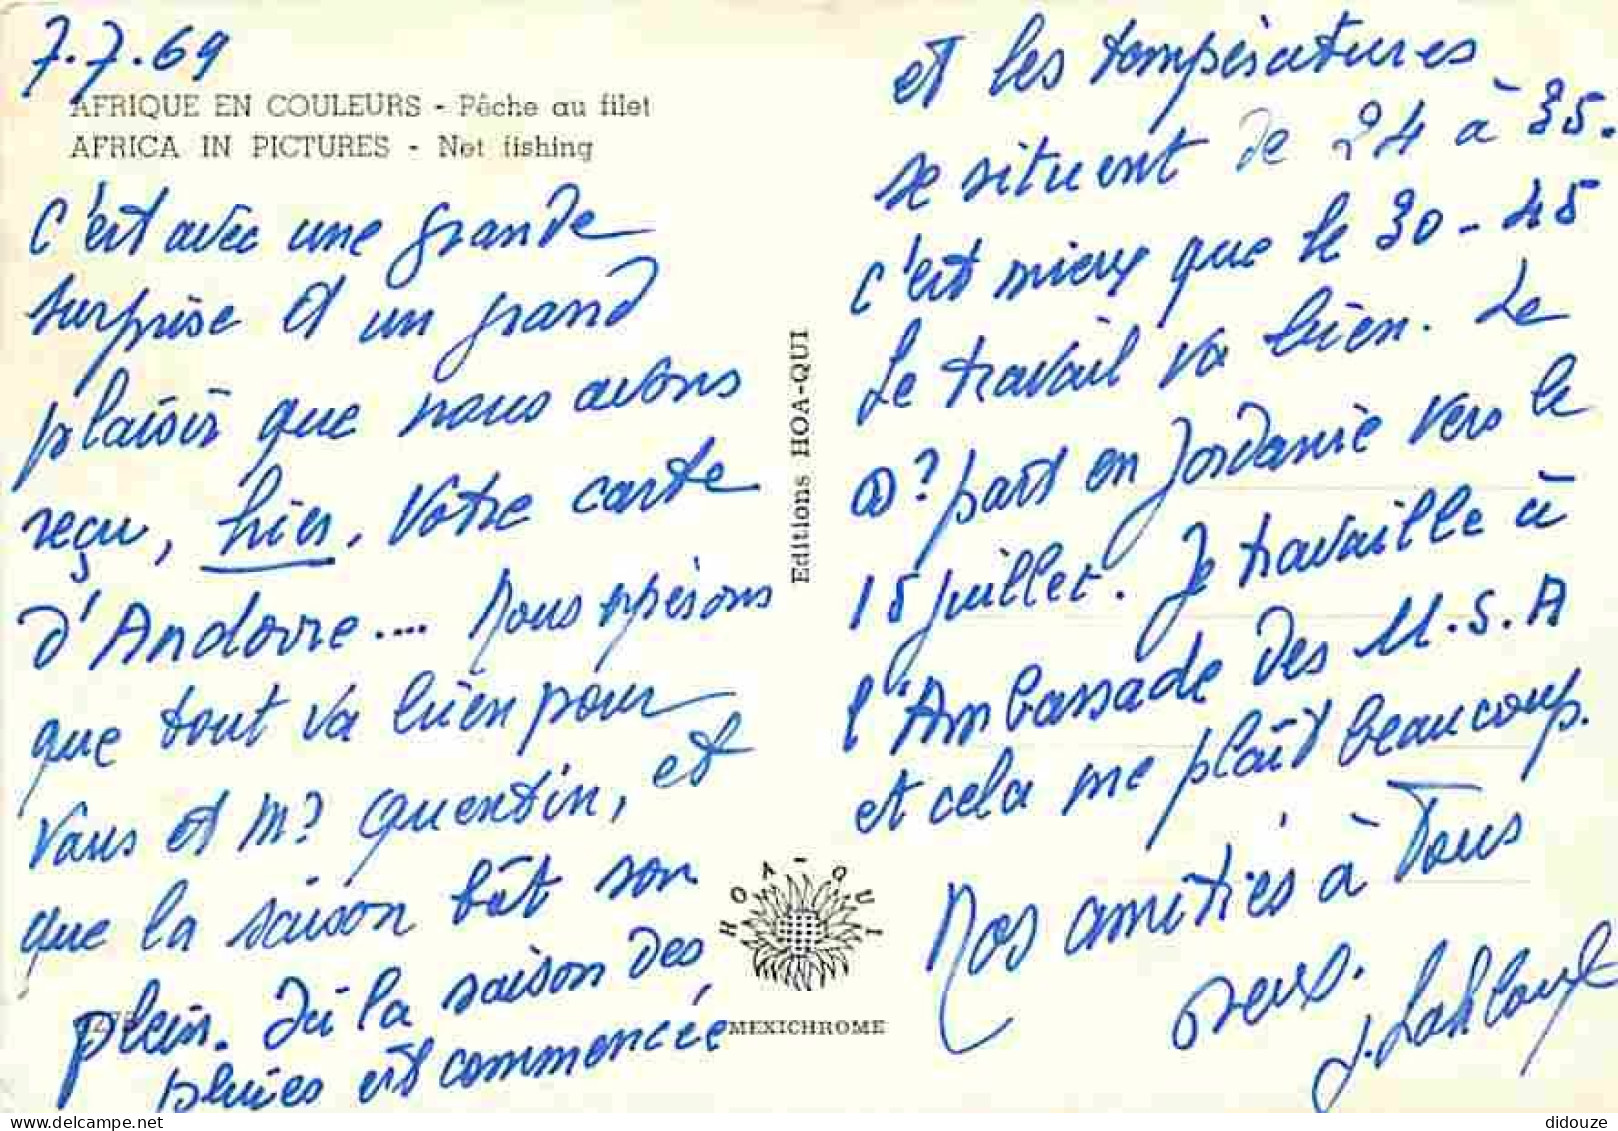 7.7.69
AFRIQUE EN COULEURS - Pêche au filet
AFRICA IN PICTURES - Net fishing
C'est avec une grande
surprise et un grand
plaisir que nous avons
reçu, hier, votre carte
d'Andorre.... Nous espérons
que tout va bien pour
vous et Mr Quentin, et
que la saison bât son
plein. Ici la saison des
pluies est commencée
Editions HOA-QUI
HOA-QUI
MEXICHROME
et les températures
se situent de 24 à 35.
c'est mieux que le 30-45
Le travail va bien. Le
Dr part en Jordanie vers le
15 juillet. Je travaille à
l'Ambassade des U.S.A
et cela me plaît beaucoup.
Nos amitiés à Tous
deux.
J.
didouze